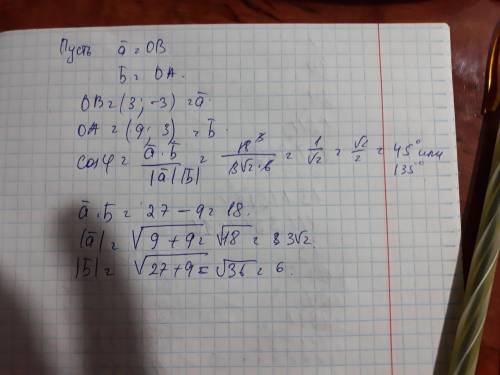 Пусть a̅ = OB
b̅ = OA.
OB = (3; -3) = a̅
OA = (9; 3) = b̅.
cos φ = a̅·b̅ / |a̅| |b̅| = 18 3 / 3√2·6 = 1/√2 = √2/2 = 45° или 135°
a̅·b̅ = 27 - 9 = 18.
|a̅| = √9+9 = √18 = 3√2
|b̅| = √27+9 = √36 = 6.